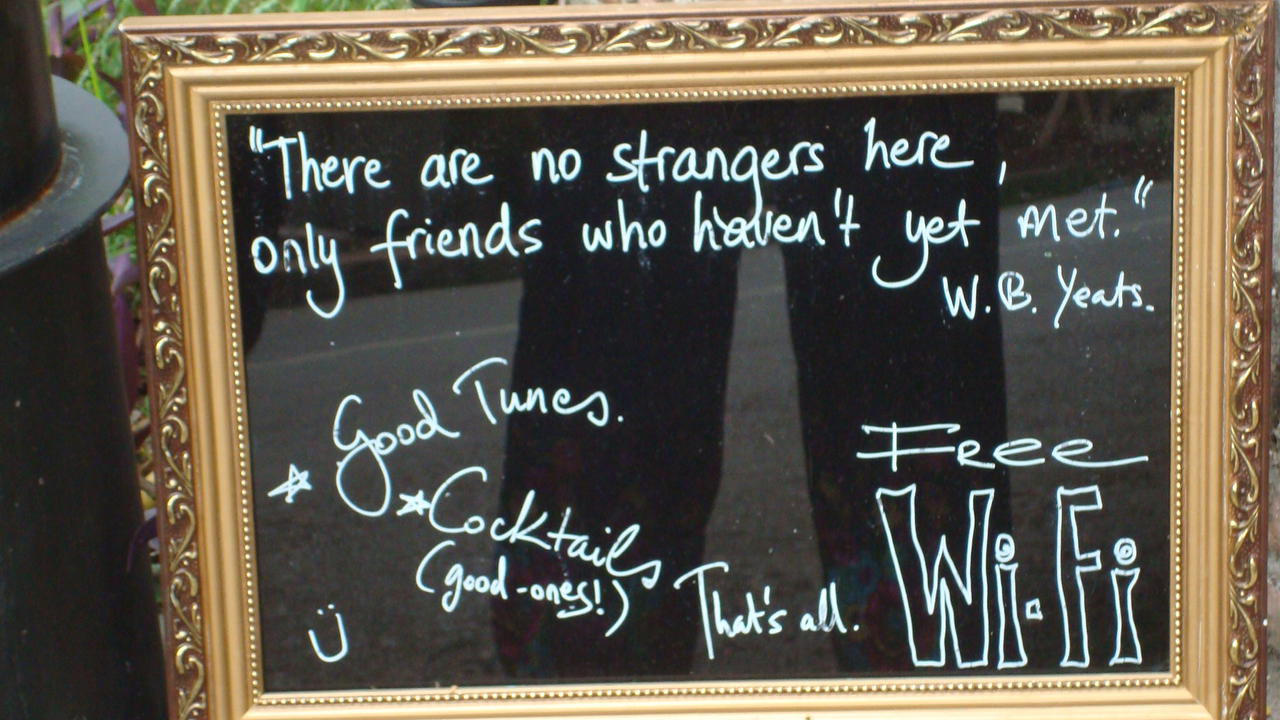 "There are no strangers here,
only friends who haven't yet met."
W.B. Yeats.
Good Tunes.
Cocktails
(good-ones!)
That's all.
Free
Wi-Fi